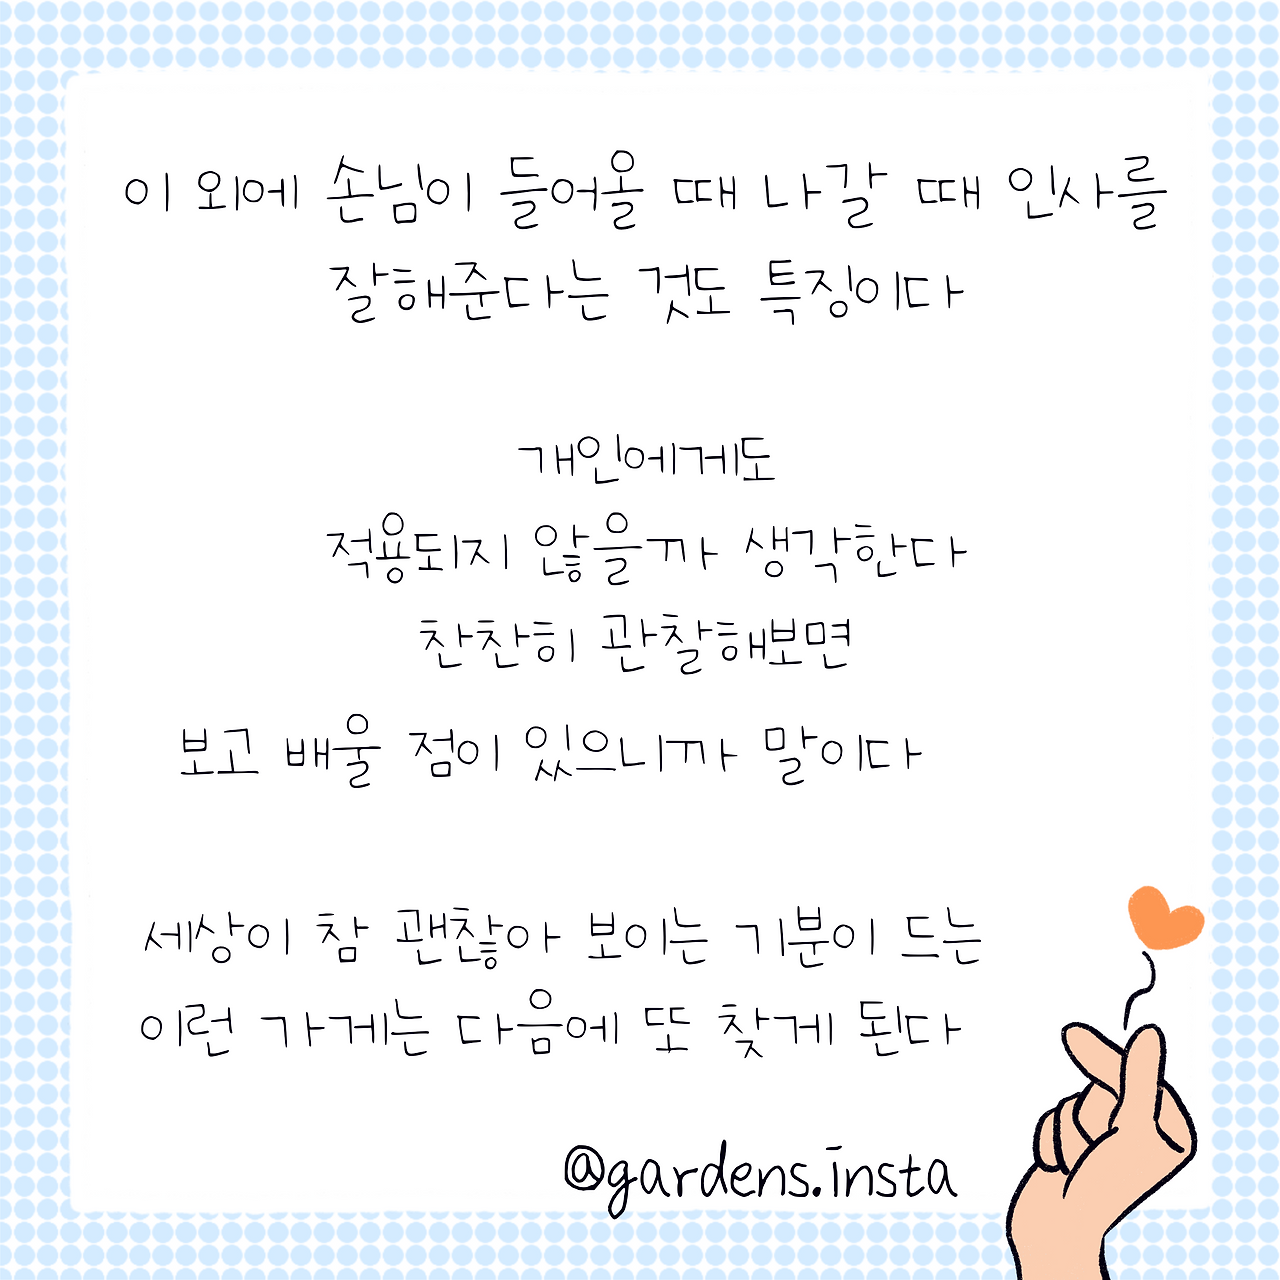 이 외에 손님이 들어올 때 나갈 때 인사를
잘해준다는 것도 특징이다
개인에게도
적용되지 않을까 생각한다
찬찬히 관찰해보면
보고 배울 점이 있으니까 말이다
세상이 참 괜찮아 보이는 기분이 드는
이런 가게는 다음에 또 찾게 된다
@gardens.insta